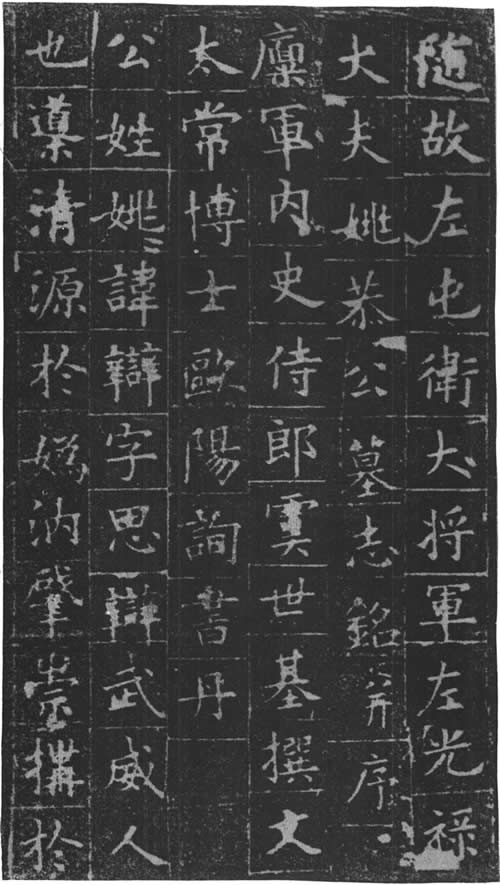 随故左屯衛大将軍左光禄
大夫姚恭公墓志銘并序
内史侍郎虞世基撰文
太常博士歐陽詢書丹
公姓姚諱辯字思辯武威人
也導清源於媯汭肇崇構於